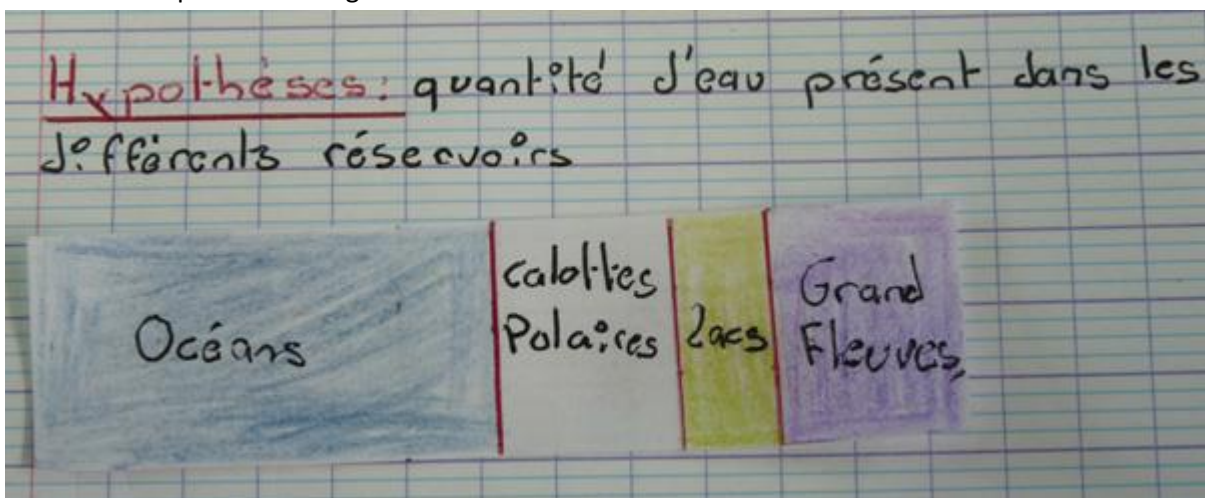 Hypothèses: quantité d'eau présent dans les
différents réservoirs
Océans
calottes
Polaires
Lacs
Grand
Fleuves,